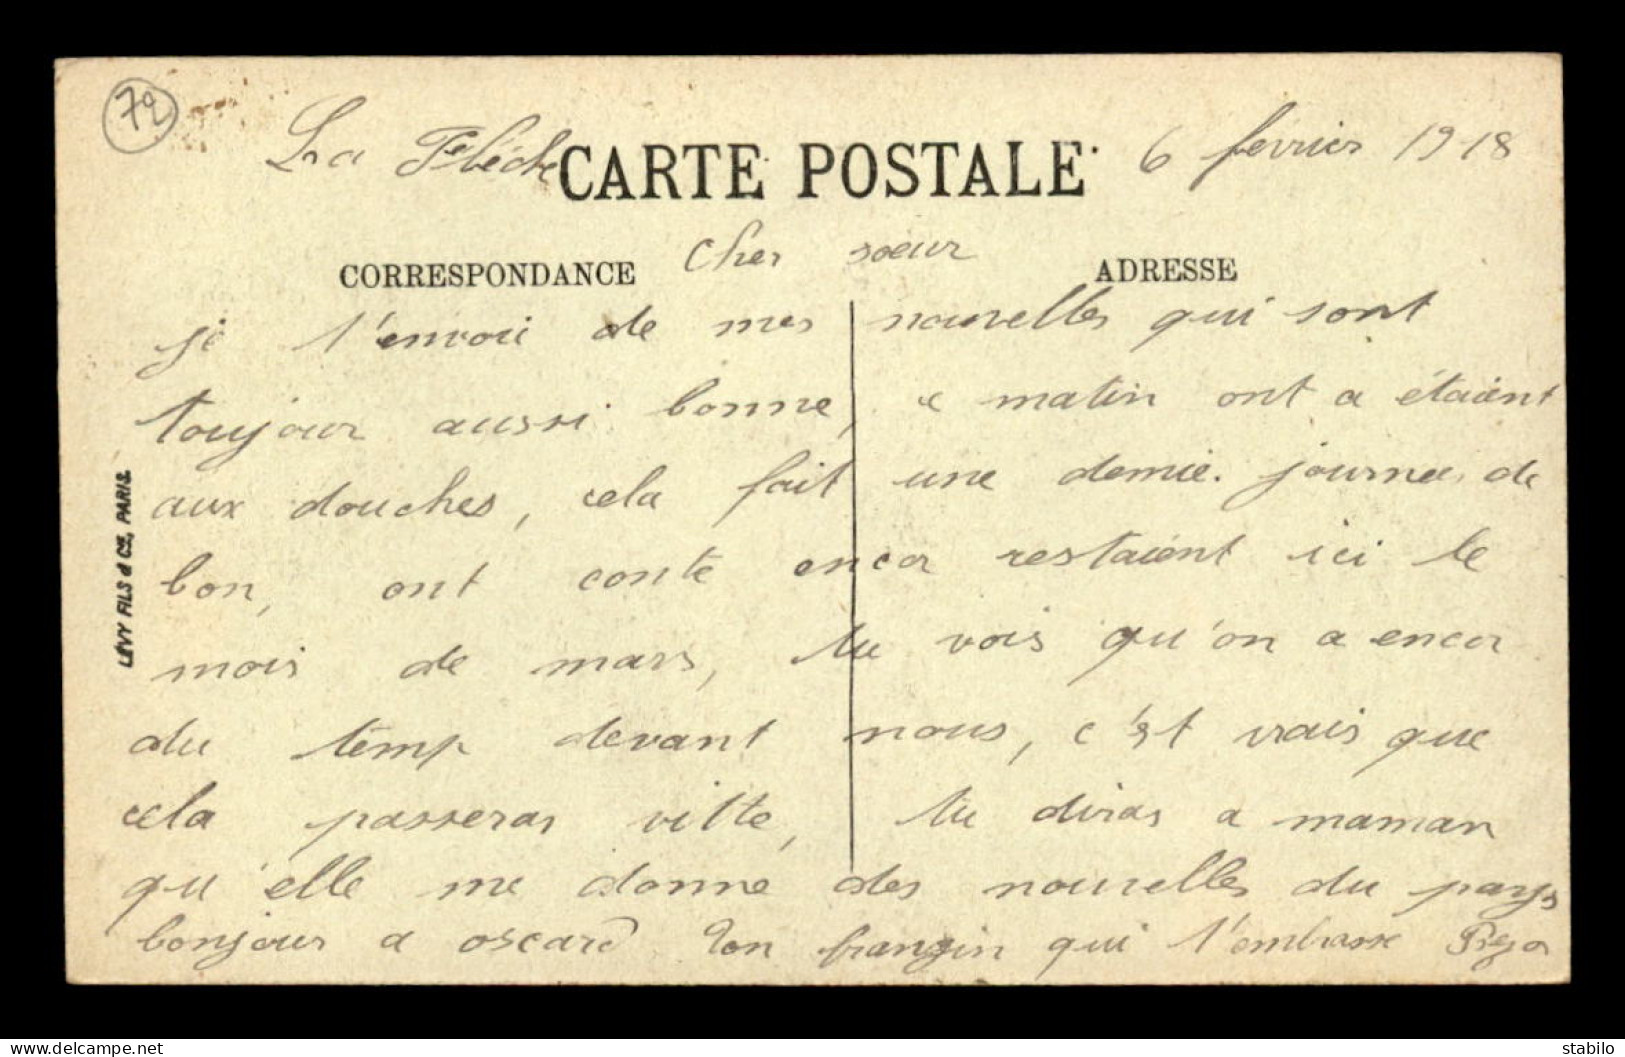 72
La Flèche CARTE POSTALE 6 février 1918
CORRESPONDANCE Cher sœur ADRESSE
je t'envoi de mes nouvelles qui sont
toujour aussi bonne, ce matin ont a étaient
aux douches, cela fait une demie journée de
bon, ont conte encor restaient ici le
mois de mars, tu vois qu'on a encor
du temp devant nous, c'est vrais que
cela passeras vitte, tu diras a maman
qu'elle me donne des nouvelles du pays
bonjour a oscard Ton frangin qui t'embrasse
LÉVY FILS & Cie, PARIS
delcampe.net
stabilo